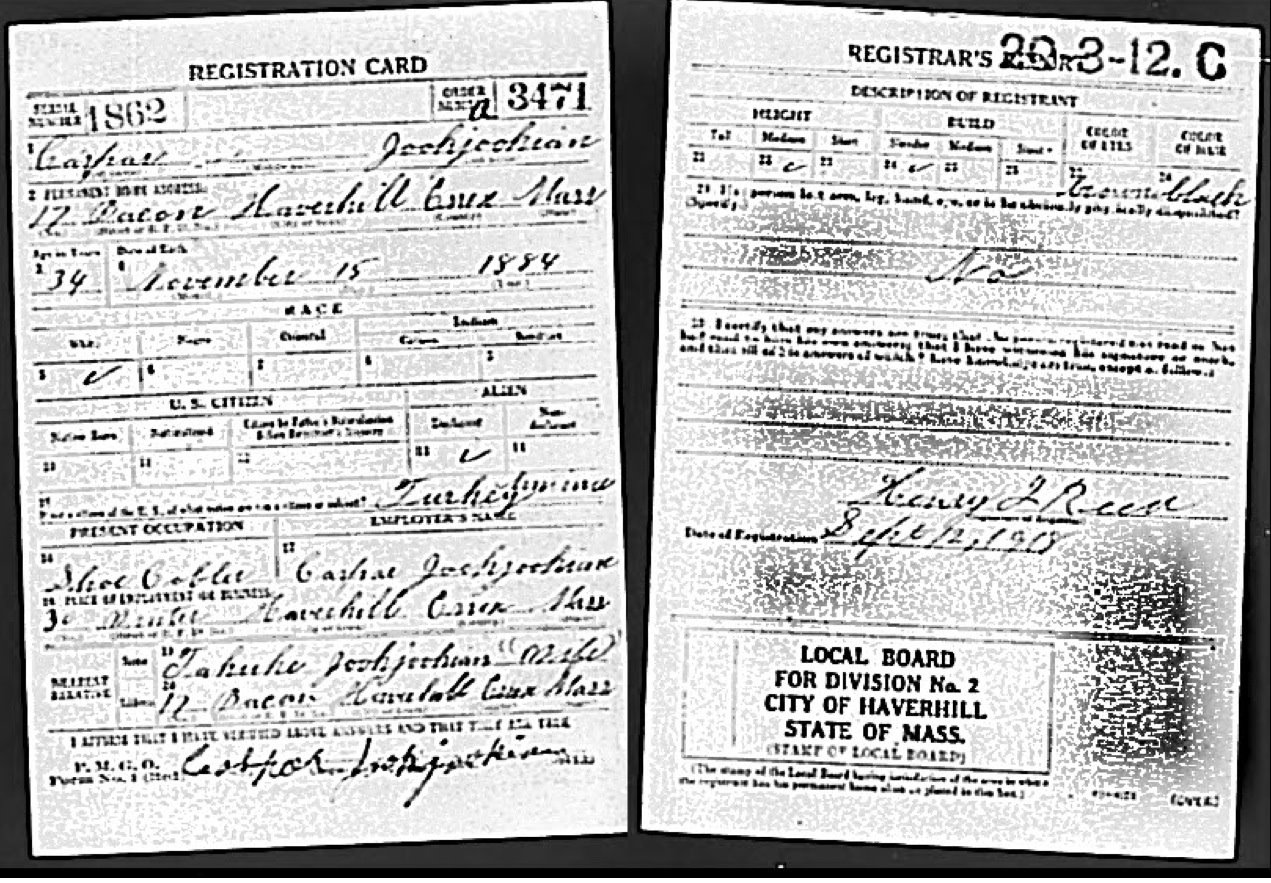 REGISTRATION CARD
SERIAL NUMBER 1862
ORDER NUMBER a 3471
1 Caspar Joohjoohian
2 PERMANENT HOME ADDRESS:
12 Bacon Haverhill Essex Mass
Age in Years Date of Birth
3 34 4 November 15 1884
(Month) (Day) (Year)
RACE
White Negro Oriental Indian
Citizen
5 ✓ 6 7 8 9
U. S. CITIZEN ALIEN
Native Born Naturalized Citizen by Father's Naturalization Declarant Non-declarant
10 11 12 13 ✓ 14
15 Turkey
PRESENT OCCUPATION EMPLOYER'S NAME
16 Shoe Cobbler 17 Caspar Joohjoohian
18 PLACE OF EMPLOYMENT OR BUSINESS:
Winter Haverhill Essex Mass
NEAREST RELATIVE Name 19 Joohjoohian (Wife)
Address 20 12 Bacon Haverhill Essex Mass
I AFFIRM THAT I HAVE VERIFIED ABOVE ANSWERS AND THAT THEY ARE TRUE
P. M. G. O.
Form No. 1 (Red) Caspar Joohjoohian
REGISTRAR'S REPORT 20-3-12. C
DESCRIPTION OF REGISTRANT
HEIGHT BUILD COLOR OF EYES COLOR OF HAIR
Tall Medium Short Slender Medium Stout
21 22 ✓ 23 24 ✓ 25 26 27 brown 28 black
29 Has person lost arm, leg, hand, eye, or is he obviously physically disqualified?
(Specify.)
No
30 I certify that my answers are true; that the person registered has read or has
had read to him his own answers; that I have witnessed his signature or mark,
and that all of his answers of which I have knowledge are true, except as follows:
Henry J Reed
Date of Registration Sept 12, 1918
LOCAL BOARD
FOR DIVISION No. 2
CITY OF HAVERHILL
STATE OF MASS.
(STAMP OF LOCAL BOARD)
(The stamp of the Local Board having jurisdiction of the area in which
the registrant has his permanent home shall be placed in this box.)
(OVER)